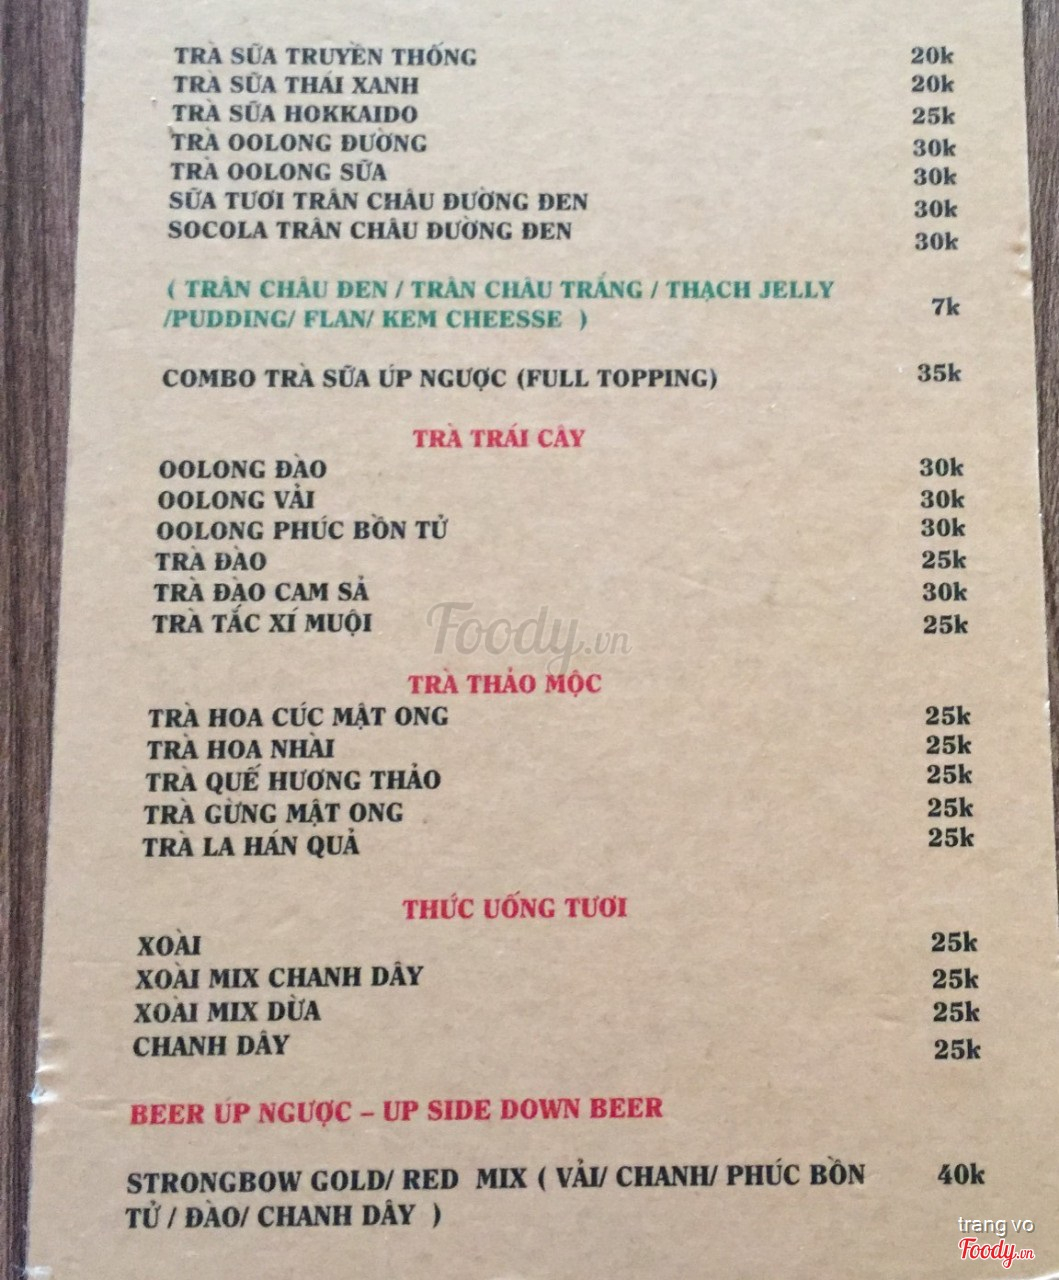 TRÀ SỮA TRUYỀN THỐNG 20k
TRÀ SỮA THÁI XANH 20k
TRÀ SỮA HOKKAIDO 25k
TRÀ OOLONG ĐƯỜNG 30k
TRÀ OOLONG SỮA 30k
SỮA TƯƠI TRÂN CHÂU ĐƯỜNG ĐEN 30k
SOCOLA TRÂN CHÂU ĐƯỜNG ĐEN 30k
( TRÂN CHÂU ĐEN / TRÂN CHÂU TRẮNG / THẠCH JELLY
/PUDDING/ FLAN/ KEM CHEESSE ) 7k
COMBO TRÀ SỮA ÚP NGƯỢC (FULL TOPPING) 35k
TRÀ TRÁI CÂY
OOLONG ĐÀO 30k
OOLONG VẢI 30k
OOLONG PHÚC BỒN TỬ 30k
TRÀ ĐÀO 25k
TRÀ ĐÀO CAM SẢ 30k
TRÀ TẮC XÍ MUỘI 25k
Foody.vn
TRÀ THẢO MỘC
TRÀ HOA CÚC MẬT ONG 25k
TRÀ HOA NHÀI 25k
TRÀ QUẾ HƯƠNG THẢO 25k
TRÀ GỪNG MẬT ONG 25k
TRÀ LA HÁN QUẢ 25k
THỨC UỐNG TƯƠI
XOÀI 25k
XOÀI MIX CHANH DÂY 25k
XOÀI MIX DỪA 25k
CHANH DÂY 25k
BEER ÚP NGƯỢC – UP SIDE DOWN BEER
STRONGBOW GOLD/ RED MIX ( VẢI/ CHANH/ PHÚC BỒN 40k
TỬ / ĐÀO/ CHANH DÂY )
trang vo
Foody.vn